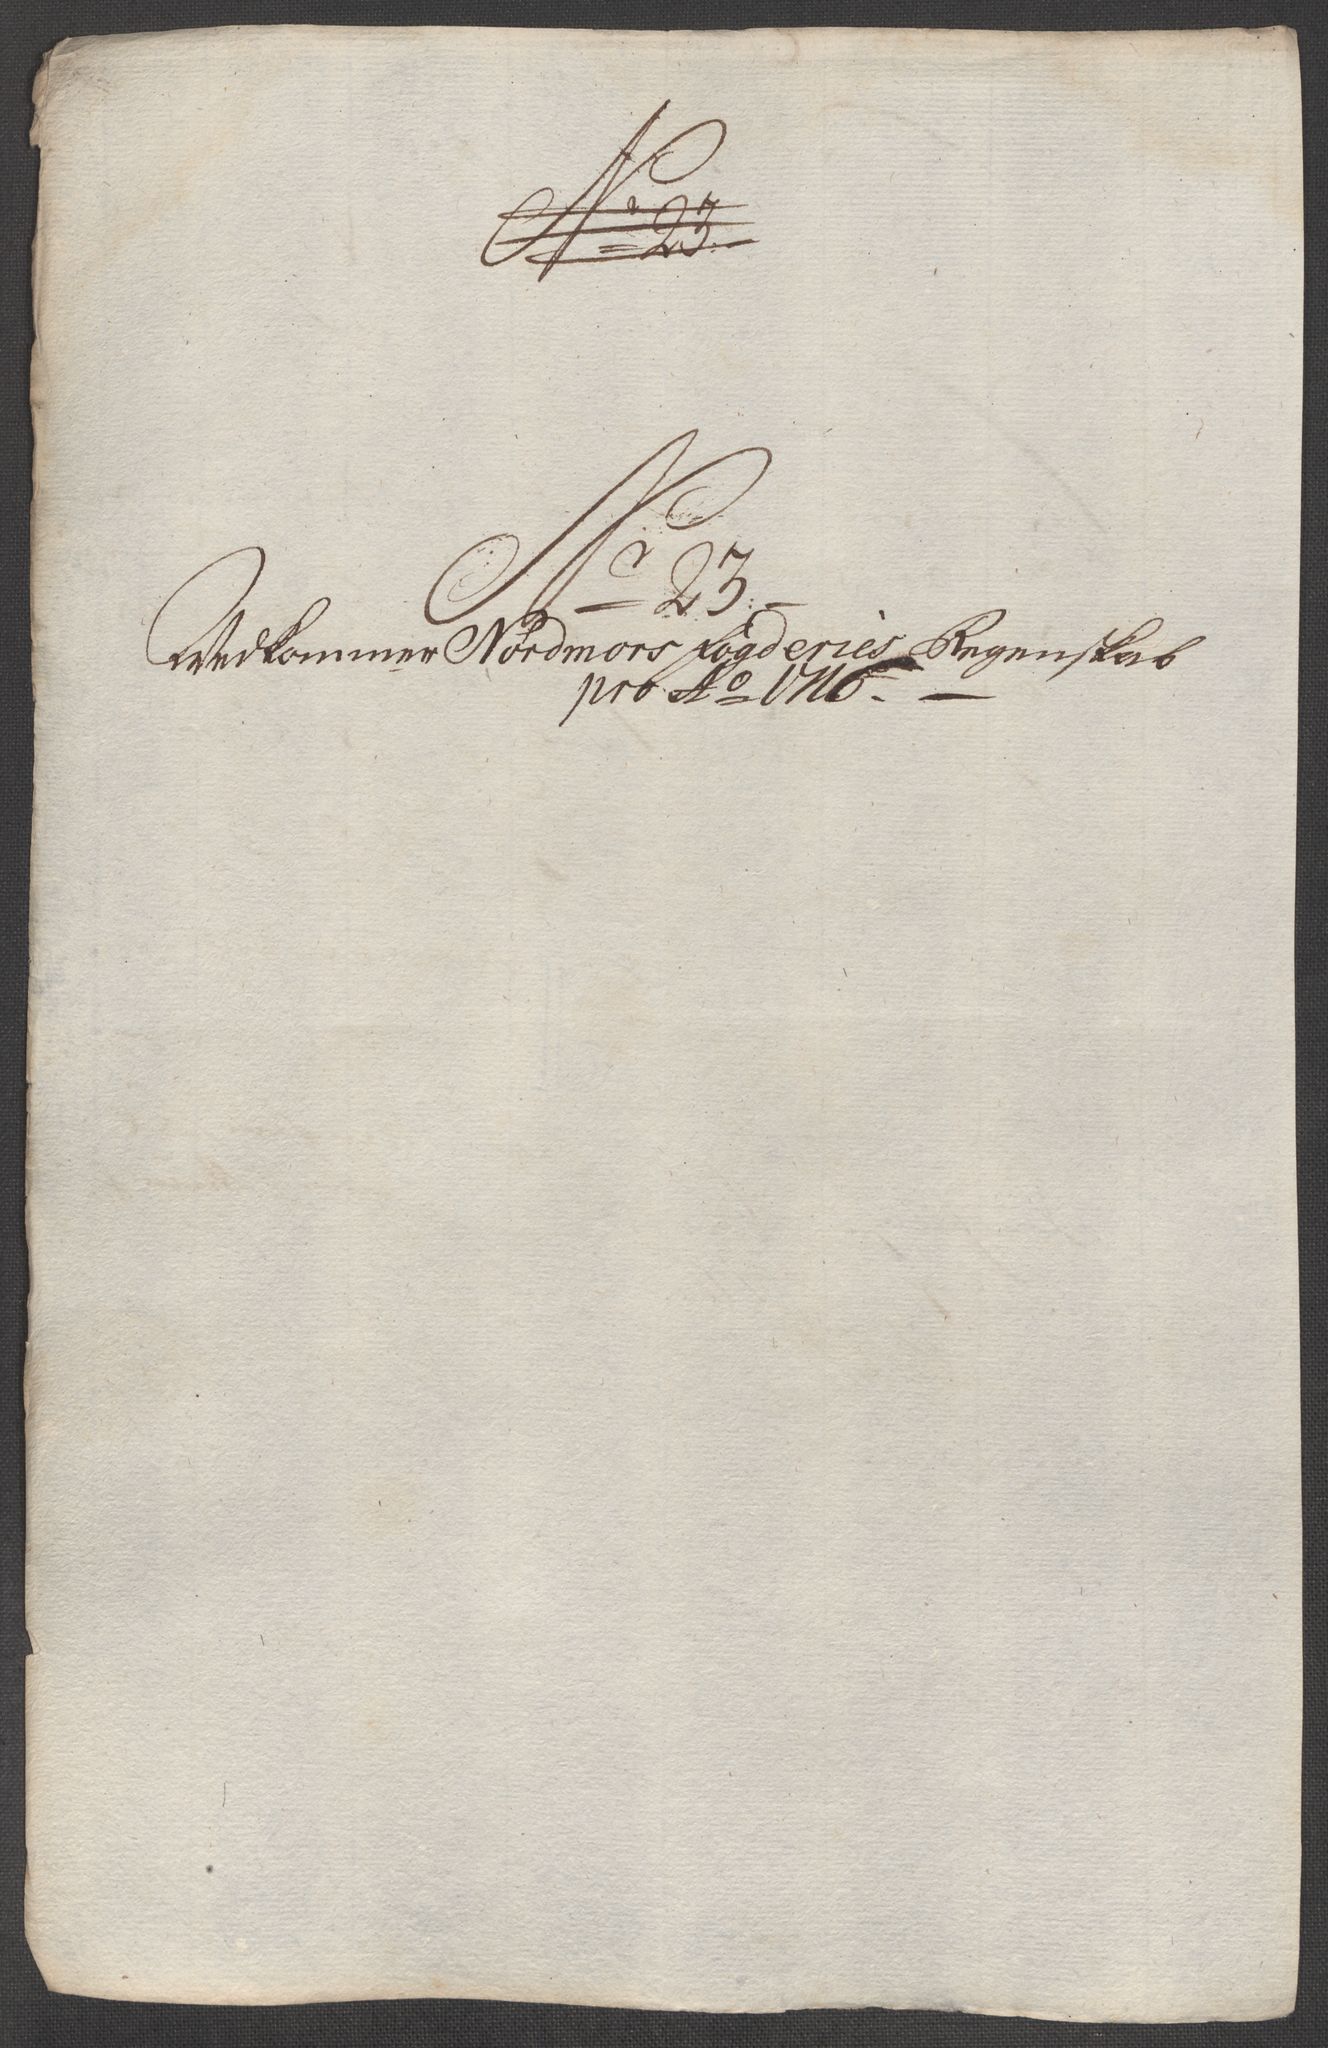 No 23.
No 23.
Vedkommer Nordmors fogderies Regenskab
pro Ao 1716.